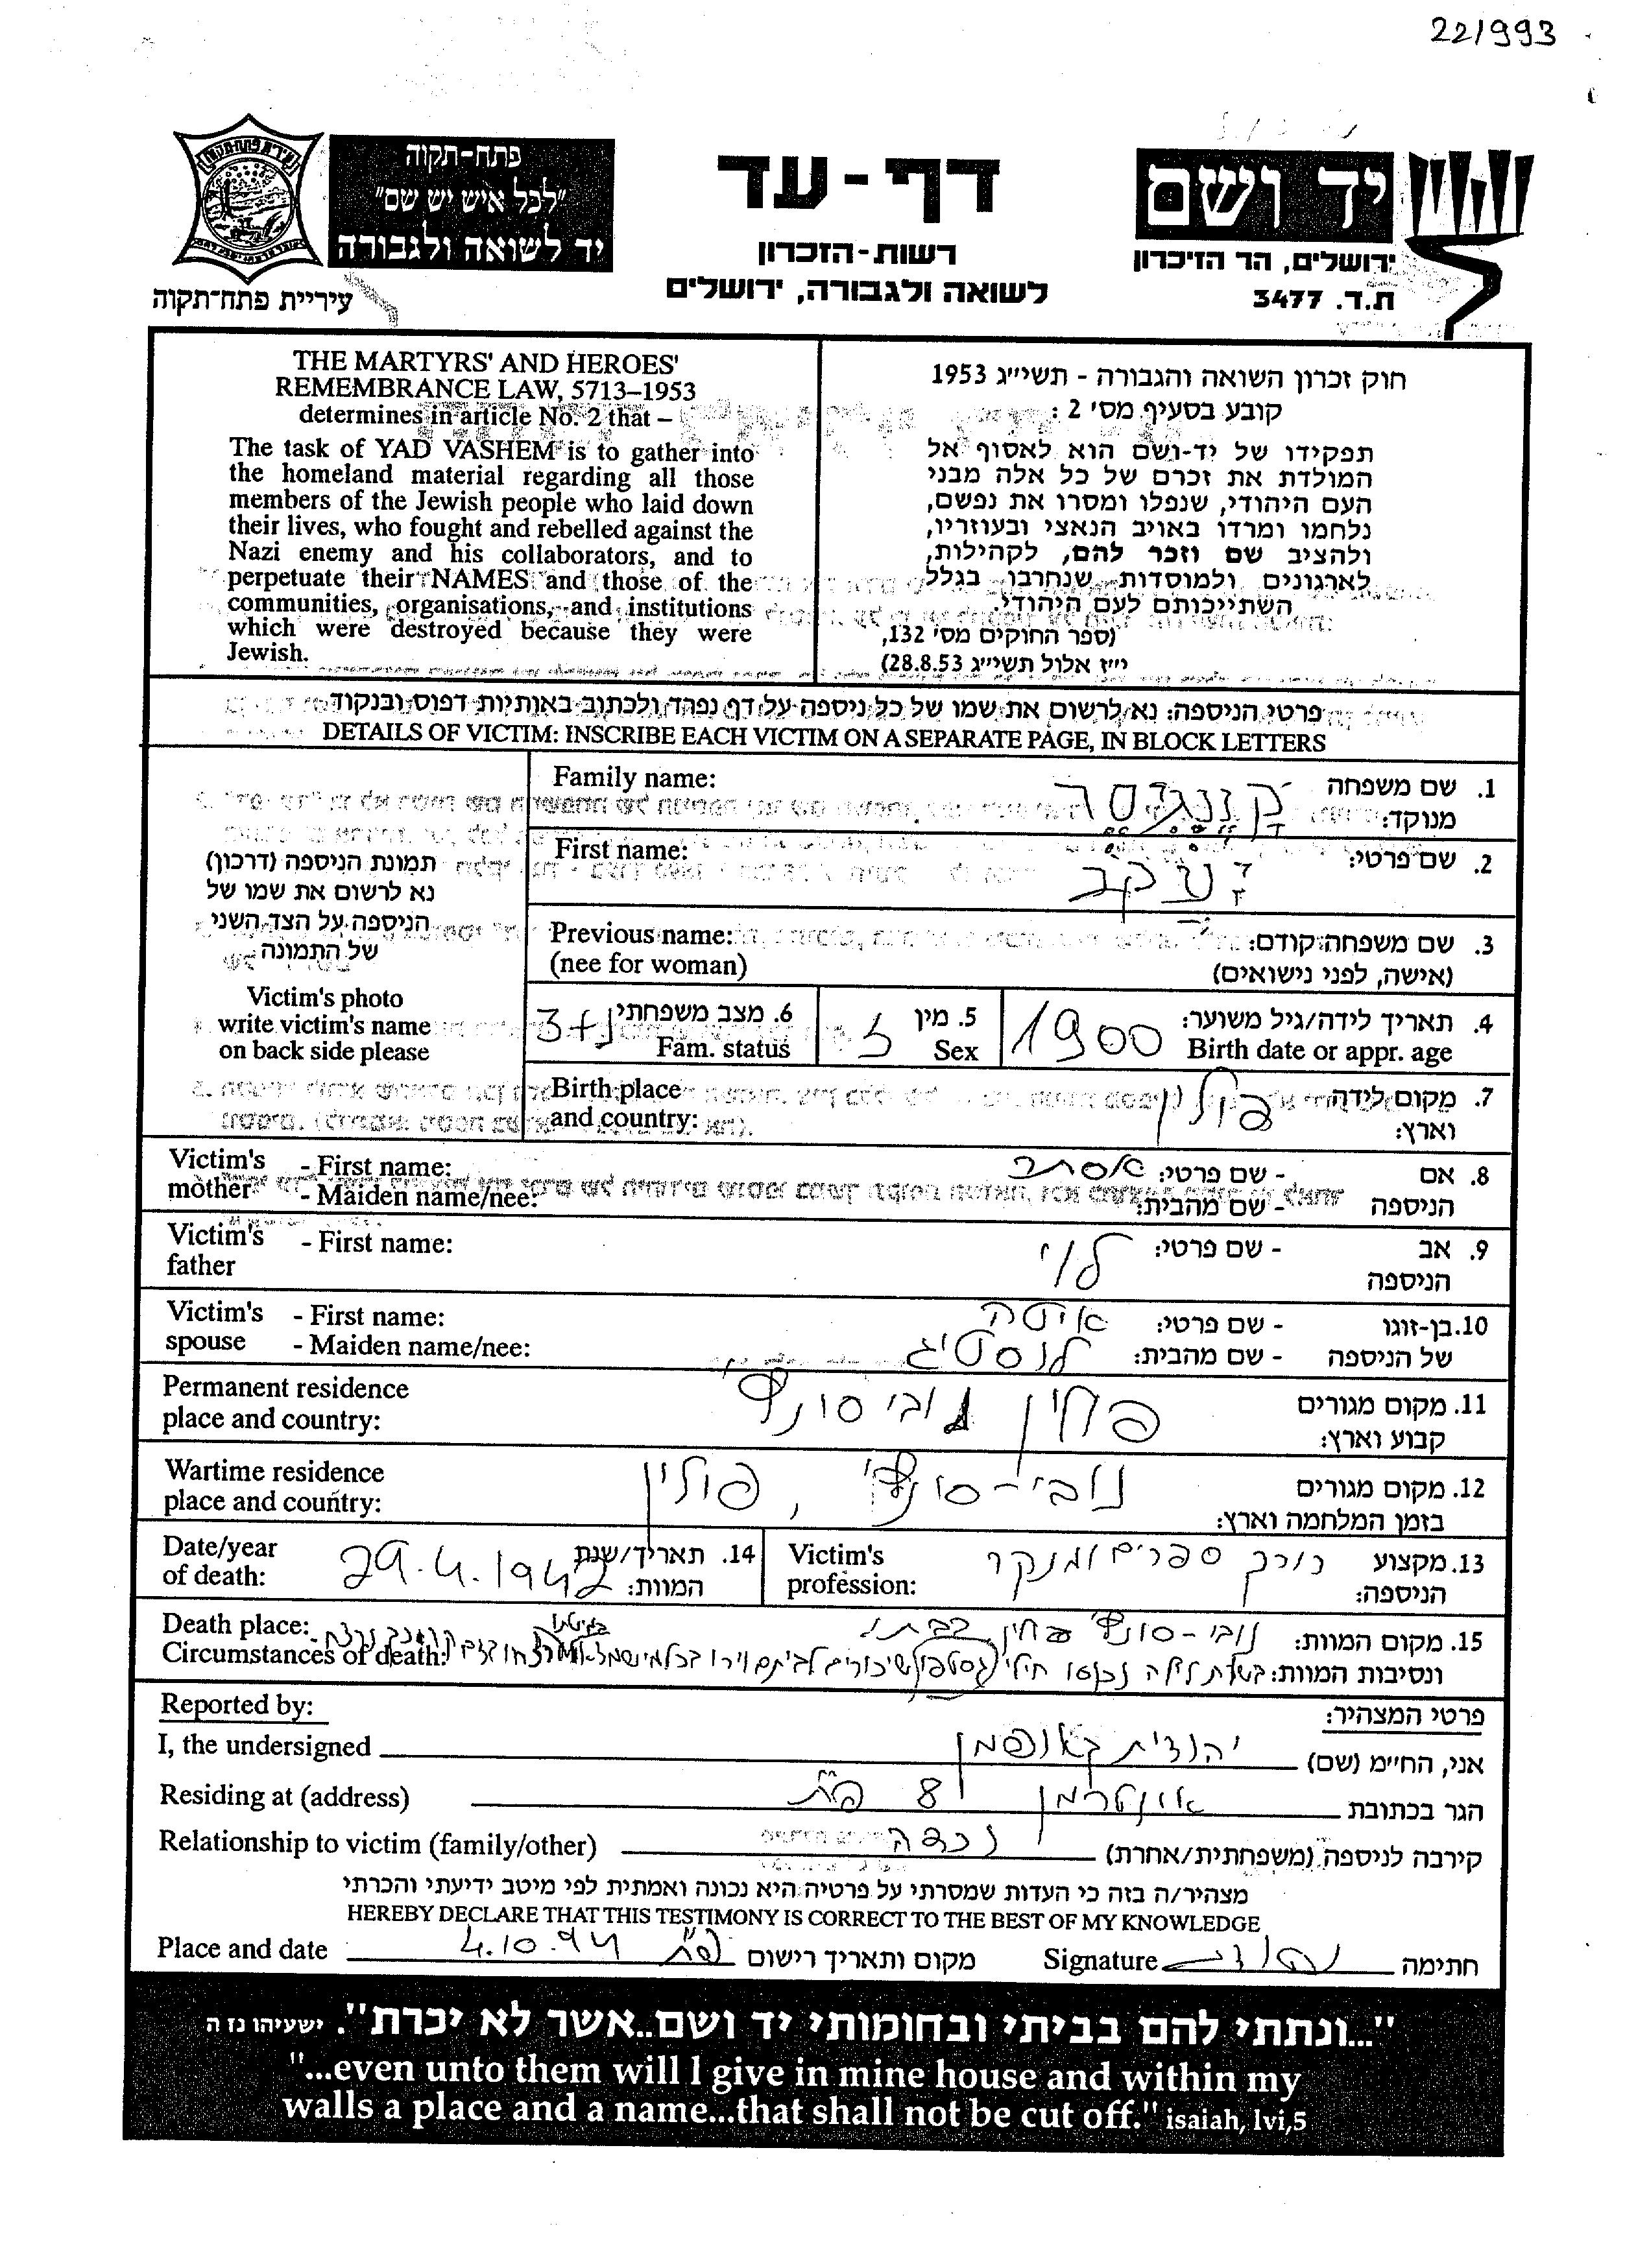 221993
פתח-תקוה
"לכל איש יש שם"
יד לשואה ולגבורה
עיריית פתח-תקוה
דף-עד
רשות-הזכרון
לשואה ולגבורה, ירושלים
יד ושם
ירושלים, הר הזיכרון
ת.ד. 3477
THE MARTYRS' AND HEROES'
REMEMBRANCE LAW, 5713–1953
determines in article No. 2 that –
The task of YAD VASHEM is to gather into
the homeland material regarding all those
members of the Jewish people who laid down
their lives, who fought and rebelled against the
Nazi enemy and his collaborators, and to
perpetuate their NAMES and those of the
communities, organisations, and institutions
which were destroyed because they were
Jewish.
חוק זכרון השואה והגבורה - תשי״ג 1953
קובע בסעיף מס' 2 :
תפקידו של יד-ושם הוא לאסוף אל
המולדת את זכרם של כל אלה מבני
העם היהודי, שנפלו ומסרו את נפשם,
נלחמו ומרדו באויב הנאצי ובעוזריו,
ולהציב שם וזכר להם, לקהילות,
לארגונים ולמוסדות שנחרבו בגלל
השתייכותם לעם היהודי.
(ספר החוקים מס' 132,
י״ז אלול תשי״ג 28.8.53)
פרטי הניספה: נא לרשום את שמו של כל ניספה על דף נפרד ולכתוב באותיות דפוס ובנקוד
DETAILS OF VICTIM: INSCRIBE EACH VICTIM ON A SEPARATE PAGE, IN BLOCK LETTERS
תמונת הניספה (דרכון)
נא לרשום את שמו של
הניספה על הצד השני
של התמונה
Victim's photo
write victim's name
on back side please
1. שם משפחה Family name:
מנוקד:
2. שם פרטי: יעקב First name:
3. שם משפחה קודם: Previous name:
(אישה, לפני נישואים) (nee for woman)
4. תאריך לידה/גיל משוער: 1900 5. מין ז 6. מצב משפחתי נ+3
Birth date or appr. age Sex Fam. status
7. מקום לידה פולין Birth place
וארץ: and country:
8. אם - שם פרטי: אסתר Victim's - First name:
הניספה - שם מהבית: mother - Maiden name/nee:
9. אב - שם פרטי: לוי Victim's - First name:
הניספה father
10. בן-זוגו - שם פרטי: איטה Victim's - First name:
של הניספה - שם מהבית: לוסטיג spouse - Maiden name/nee:
11. מקום מגורים פולין נובי סונץ' Permanent residence
קבוע וארץ: place and country:
12. מקום מגורים נובי-סונץ', פולין Wartime residence
בזמן המלחמה וארץ: place and country:
13. מקצוע כורך ספרים ומנקר Victim's 14. תאריך/שנת 29.4.1942 Date/year
הניספה: profession: המוות: of death:
15. מקום המוות: נובי-סונץ' פולין בביתו Death place:
ונסיבות המוות: בשעת לילה נכנסו חילי גסטפו שיכורים לביתם וירו בכל Circumstances of death:
פרטי המצהיר: Reported by:
אני, החי״מ (שם) יהודית קאופמן I, the undersigned
הגר בכתובת אונטרמן 8 פ״ת Residing at (address)
קירבה לניספה (משפחתית/אחרת) נכדה Relationship to victim (family/other)
מצהיר/ה בזה כי העדות שמסרתי על פרטיה היא נכונה ואמתית לפי מיטב ידיעתי והכרתי
HEREBY DECLARE THAT THIS TESTIMONY IS CORRECT TO THE BEST OF MY KNOWLEDGE
חתימה Signature מקום ותאריך רישום פ״ת 4.10.94 Place and date
"...ונתתי להם בביתי ובחומותי יד ושם..אשר לא יכרת". ישעיהו נז ה
"...even unto them will I give in mine house and within my
walls a place and a name...that shall not be cut off." isaiah, lvi,5